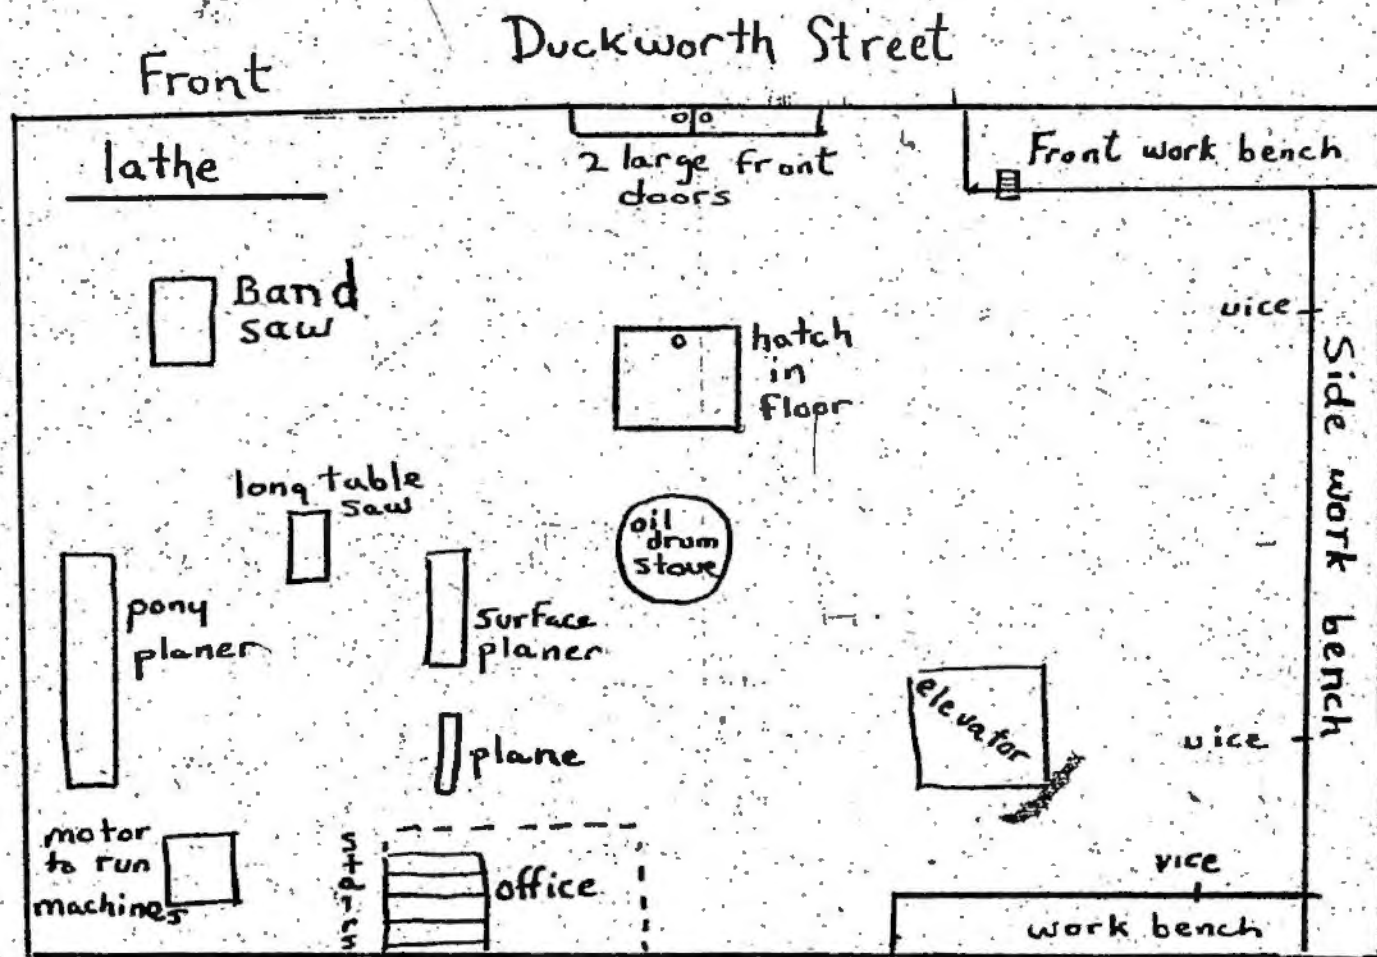 Duckworth Street
Front
lathe
2 large front
doors
Front work bench
Band
saw
hatch
in
floor
vice
Side work bench
long table
saw
oil
drum
stove
pony
planer
surface
planer
elevator
plane
vice
motor
to run
machines
office
vice
work bench